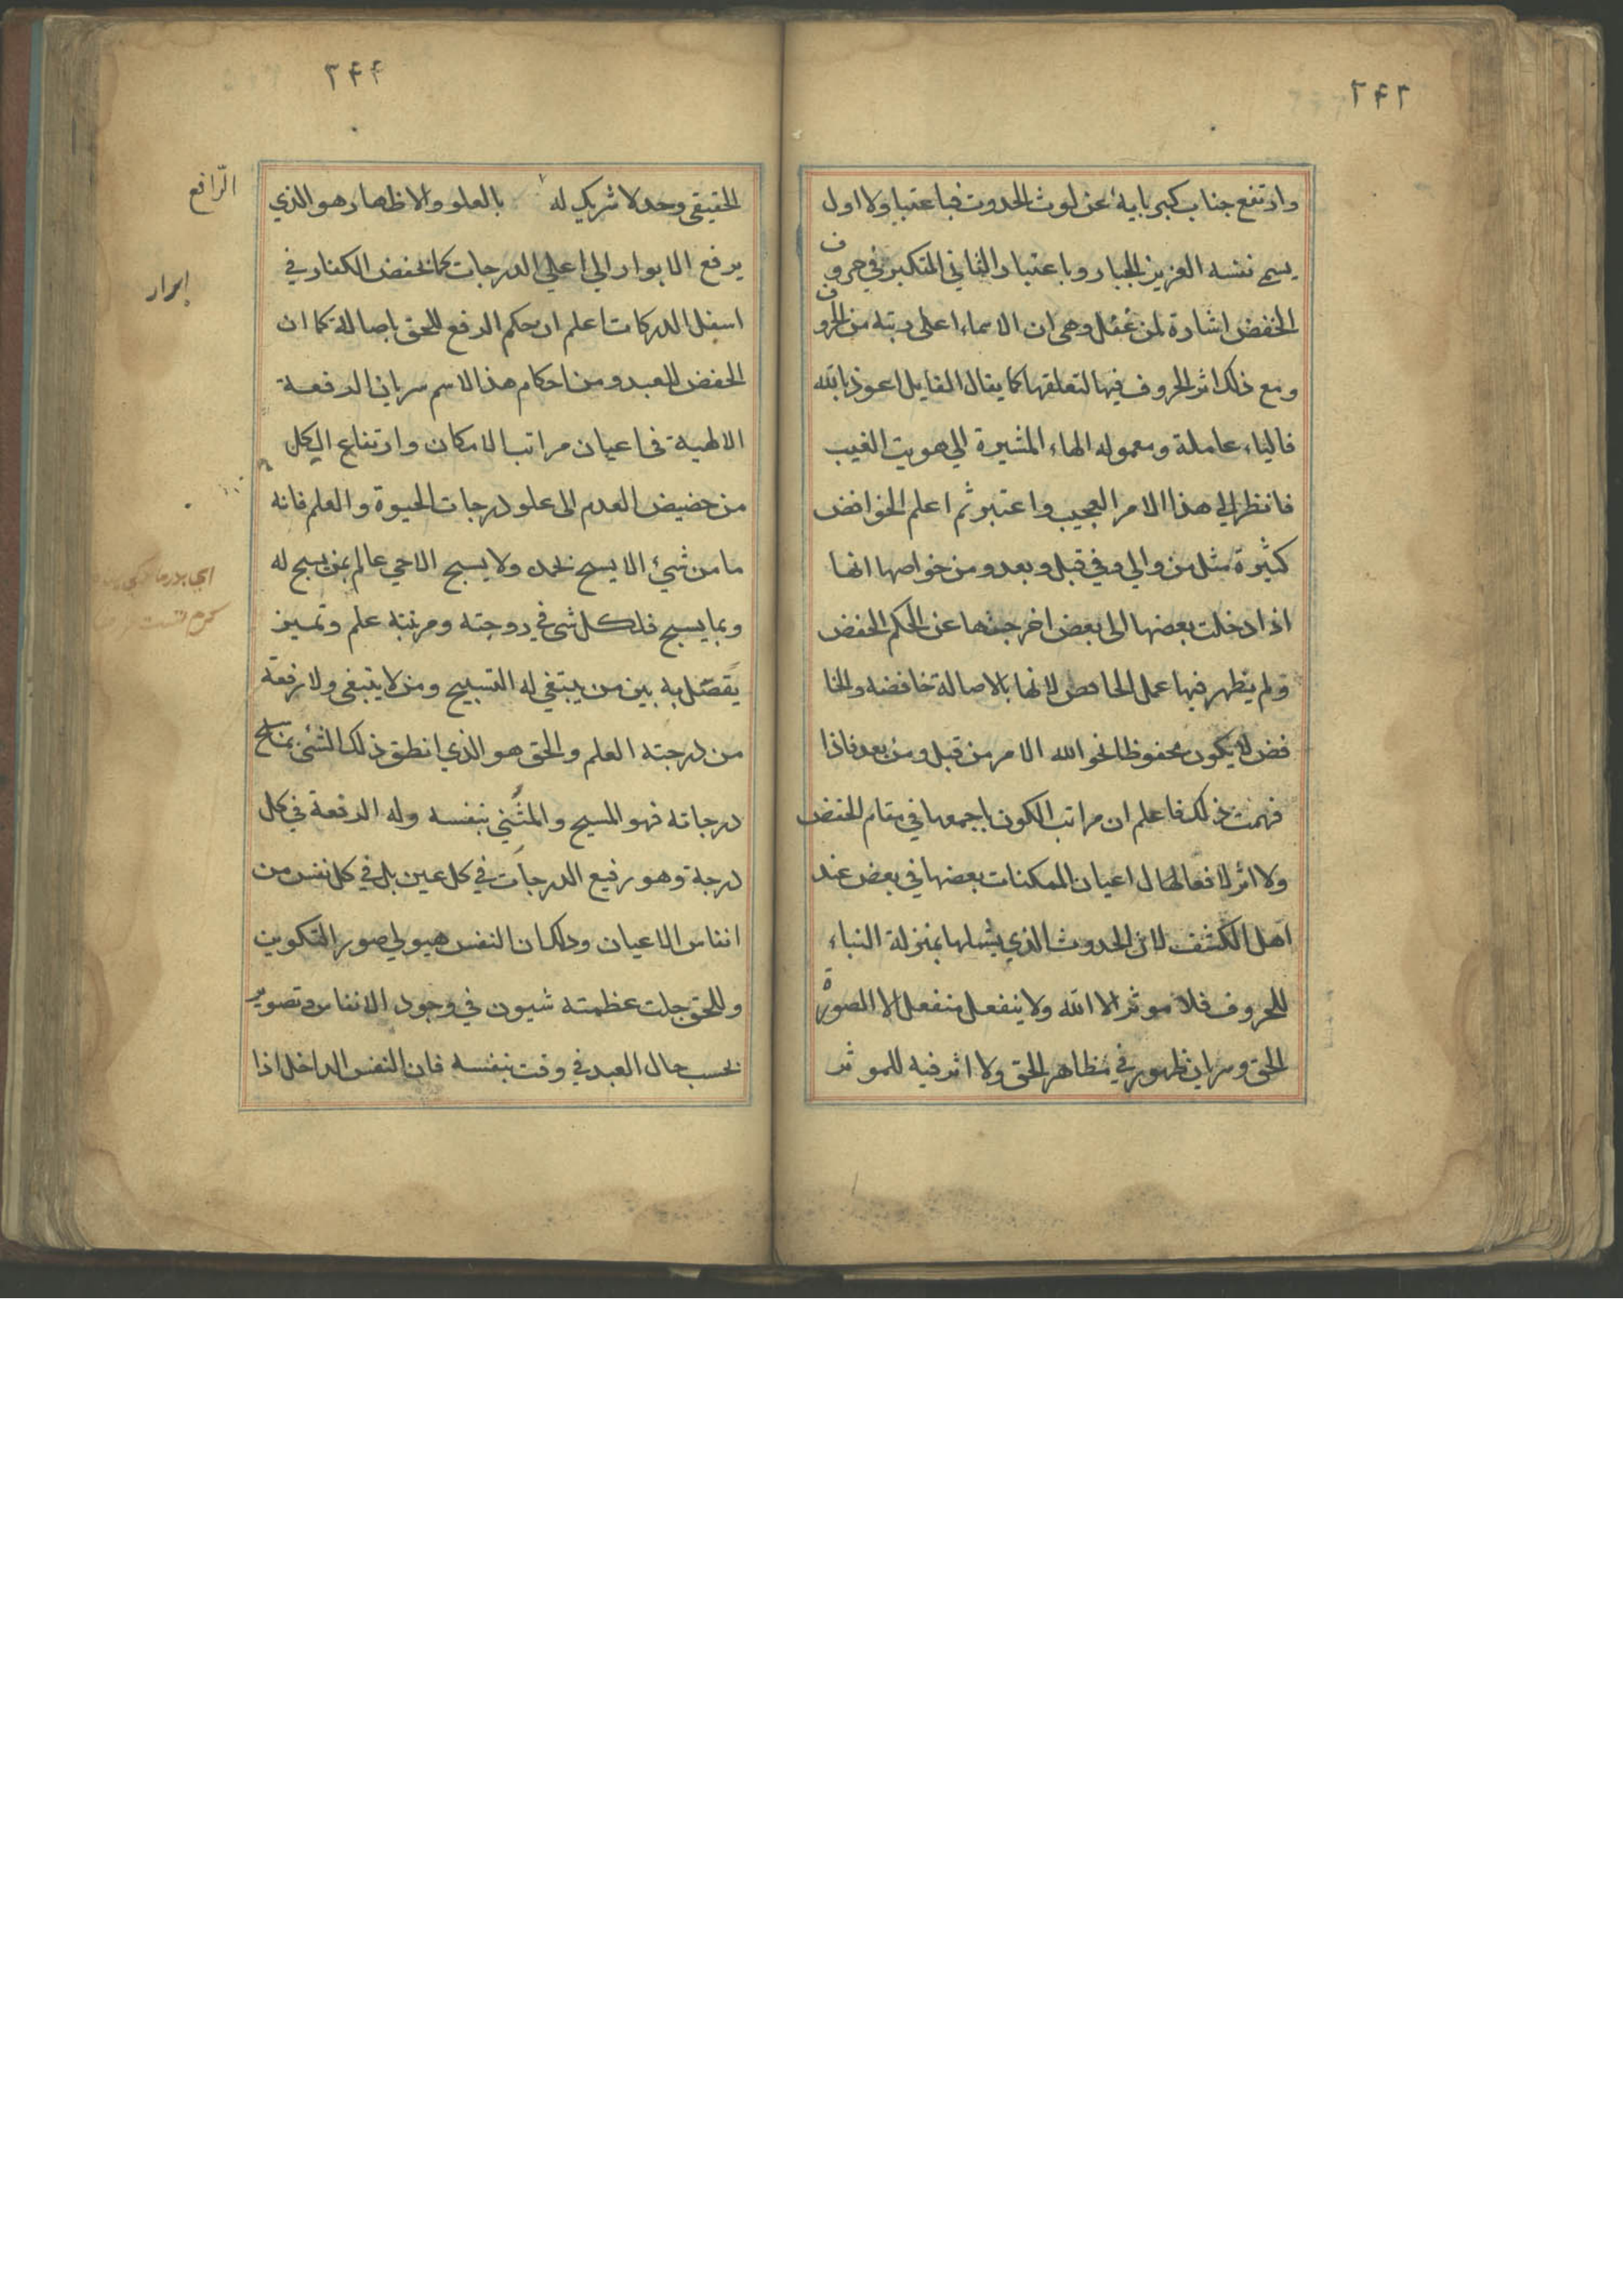 ٢٤٣
وارتفع جناب كبريايه عن لوث الحدوث فباعتبار الاول
يسمى نفسه العزيز الجبار وباعتبار الثاني المتكبر في حروف
الخفض اشارة لمن عقل وهي ان الاسماء اعلى رتبة من الحروف
ومع ذلك اثر الحروف فيها لتعلقها كما يقال القايل اعوذ بالله
فالباء عاملة ومعموله الهاء المشيرة الي هويت الغيب
فانظر الي هذا الامر العجيب واعتبر ثم اعلم الخوافض
كثيرة مثل من والي وفي قبل وبعد ومن خواصها انها
اذا دخلت بعضها الى بعض اخرجتها عن الحكم الخفض
ولم يظهر فيها عمل الخافض لانها بالاصالة خافضه والخا
فض لا يكون مخفوظا نحو الله الامر من قبل ومن بعد فاذا
فهمت ذلك فاعلم ان مراتب الكون باجمعها في مقام الخفض
ولا اثر لافعالها ل اعيان الممكنات بعضها في بعض عند
اهل الكشف لان الحدوث الذي يشملها بمنزلة البناء
للحروف فلا موثر الا الله ولا ينفعل منفعل الا الصورة
الحق وسريان ظهوره في مظاهر الحق ولا اثر فيه للموثر
٢٤٤
الحقيقي وحده لا شريك له بالعلو والاظهار هو الذي
الرّافع
يرفع الابوار الي اعلي الدرجات كما يخفض الكفار في
ابرار
اسفل الدركات اعلم ان حكم الرفع للحق باصالة كما ان
الخفض للعبد ومن احكام هذا الاسم سريان الرفعة
الالهية في اعيان مراتب الامكان وارتفاع الكل
من حضيض العدم الى علو درجات الحيوة والعلم فانه
ما من شيء الا يسبح بحمده ولا يسبح الا حي عالم بمن يسبح له
وبما يسبح فلكل شي في درجته ومرتبته علم وتميز
يفصل به بين من ينبغي له التسبيح ومن لا ينبغي ولا رفعة
من درجته العلم والحق هو الذي انطق ذلك الشئ بمدايح
درجاته فهو المسبح والمثني بنفسه وله الرفعة في كل
درجة وهو رفيع الدرجات في كل عين بل في كل نفس من
انفاس الاعيان وذلك ان النفس هيولي صور التكوين
وللحق جلت عظمته شيون في وجود الانفاس وتصوير
بحسب حال العبد في وقت بنفسه فان النفس الداخل اذا